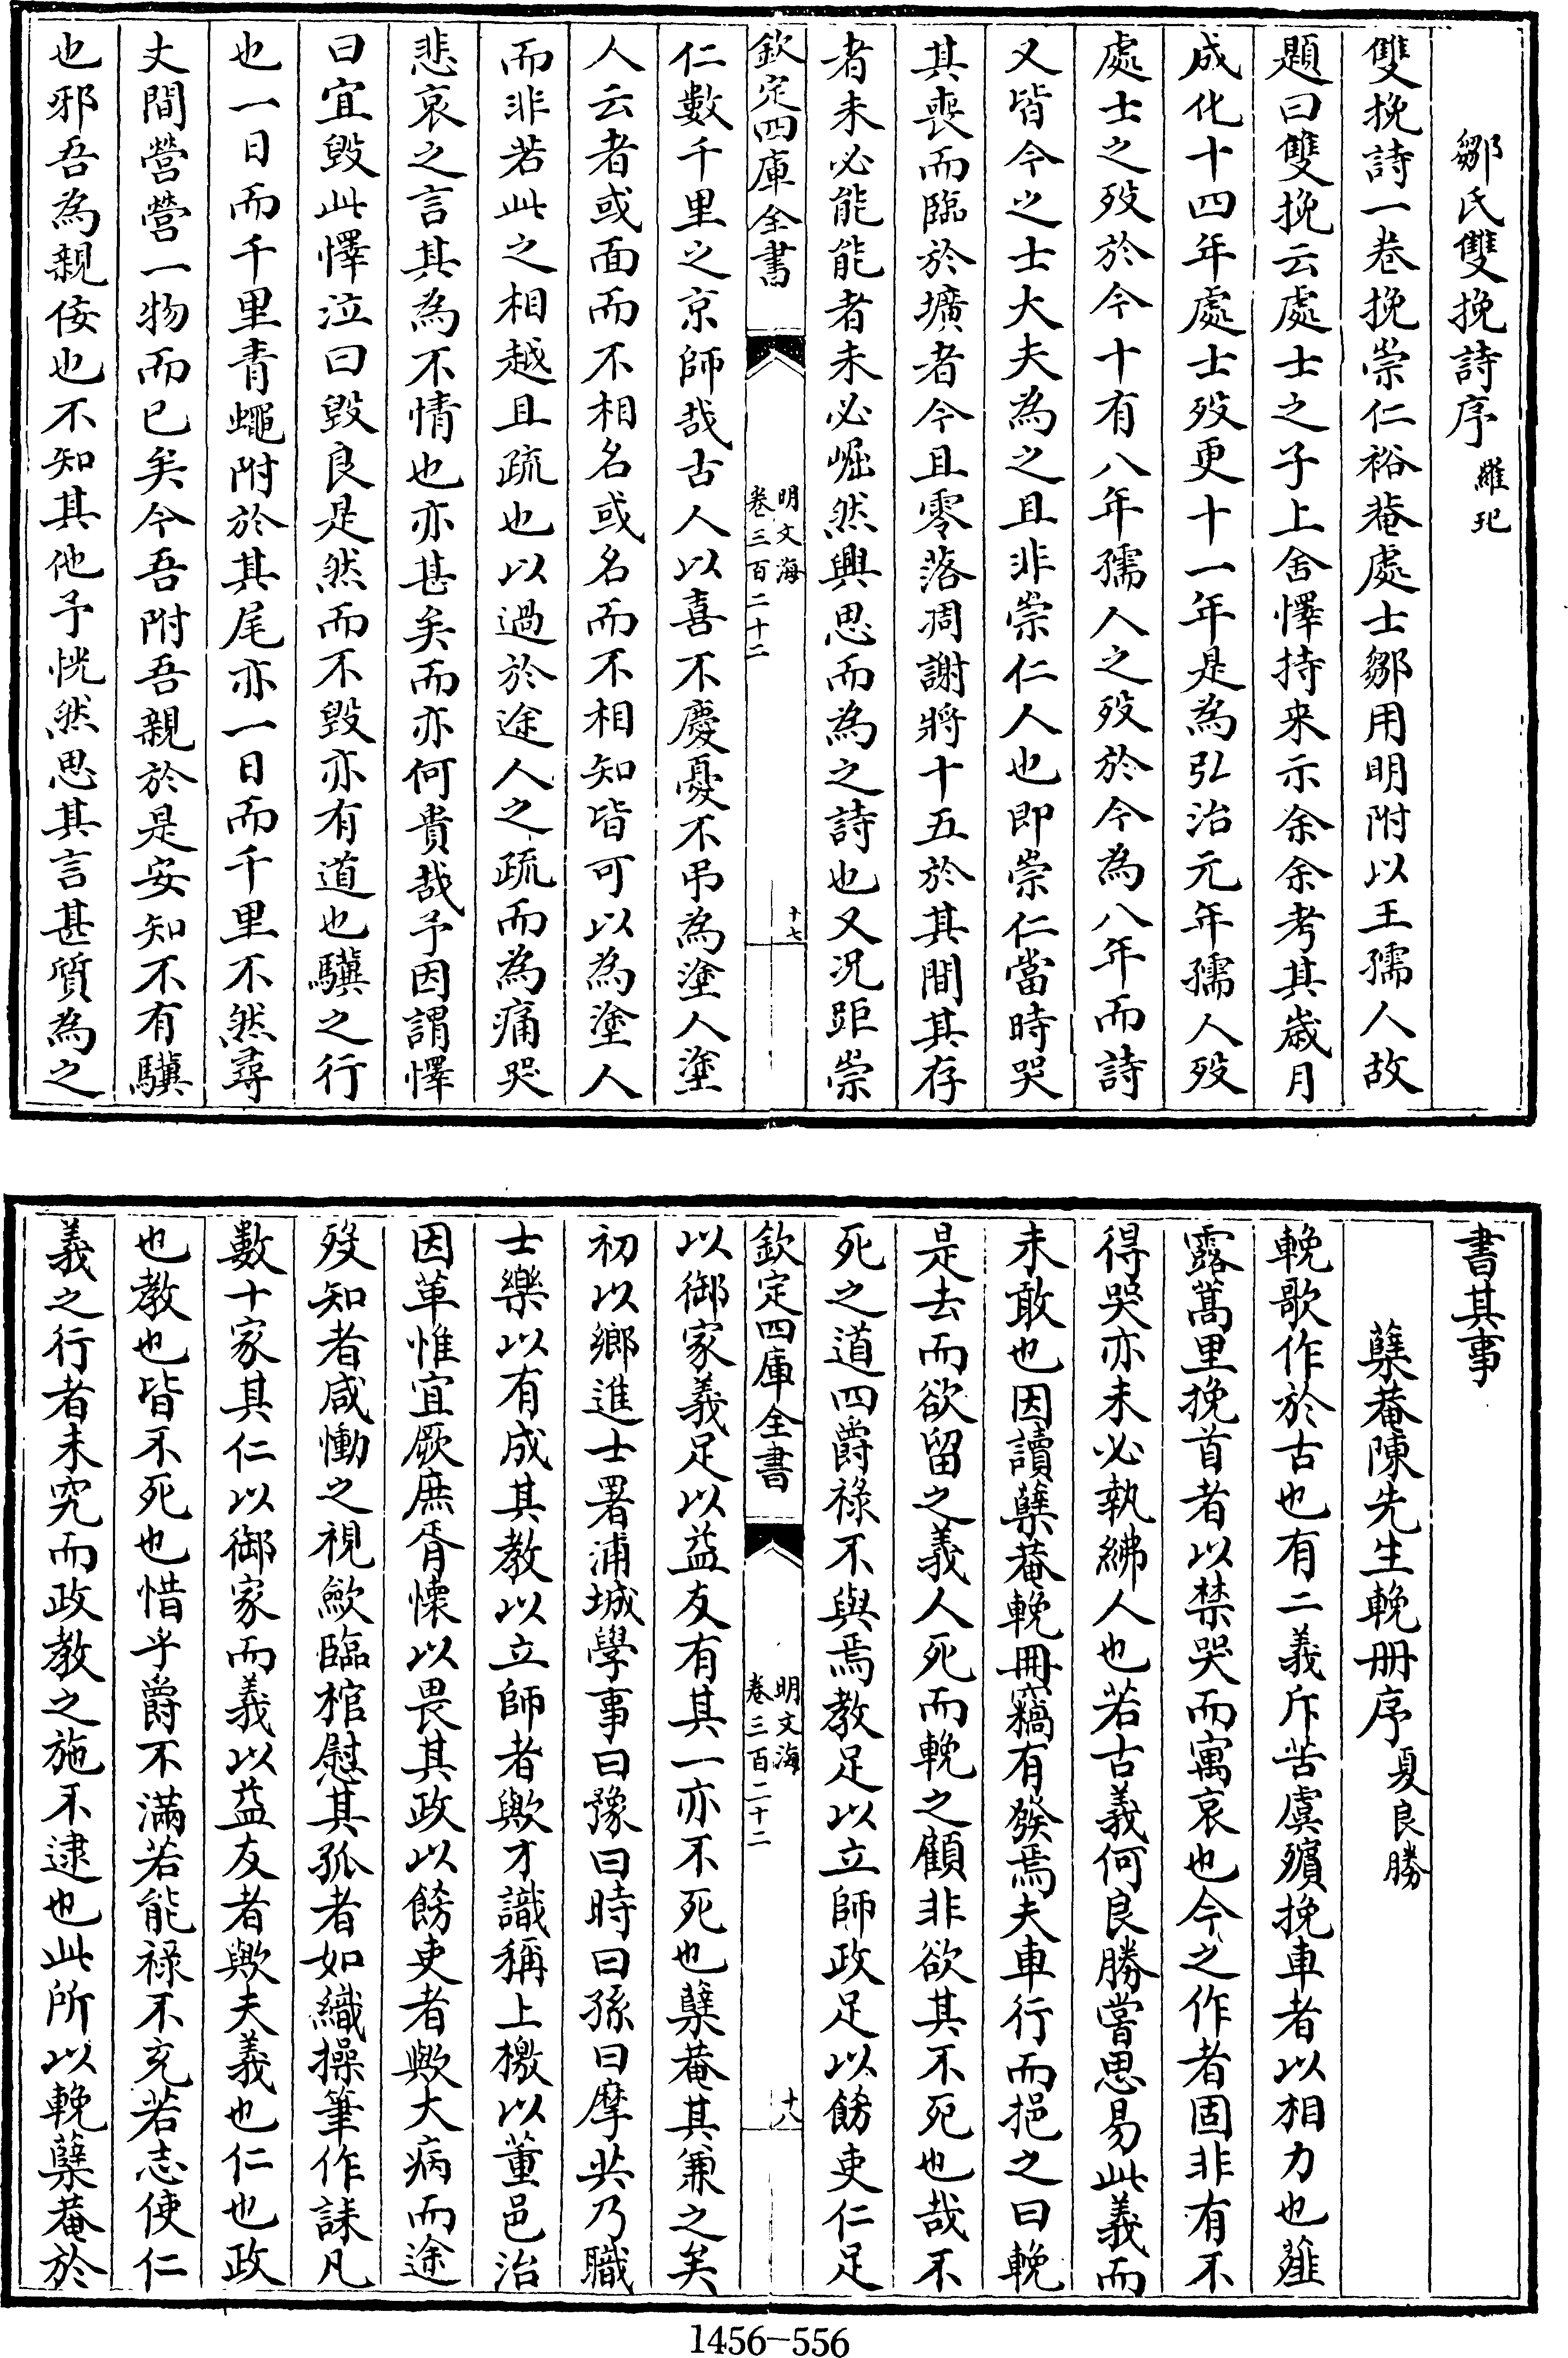 鄒氏雙挽詩序 羅玘
雙挽詩一卷挽崇仁裕菴處士鄒用明附以王孺人故
題曰雙挽云處士之子上舍懌持來示余余考其歲月
成化十四年處士歿更十一年是為弘治元年孺人歿
處士之歿於今十有八年孺人之歿於今為八年而詩
又皆今之士大夫為之且非崇仁人也即崇仁當時哭
其喪而臨於壙者今且零落凋謝將十五於其間其存
者未必能能者未必崛然興思而為之詩也又況距崇
欽定四庫全書
明文海
卷三百二十二
十七
仁數千里之京師哉古人以喜不慶憂不弔為塗人塗
人云者或面而不相名或名而不相知皆可以為塗人
而非若此之相越且疏也以過於途人之疏而為痛哭
悲哀之言其為不情也亦甚矣而亦何貴哉予因謂懌
曰宜毀此懌泣曰毀良是然而不毀亦有道也驥之行
也一日而千里青蠅附於其尾亦一日而千里不然尋
丈間營營一物而已矣今吾附吾親於是安知不有驥
也邪吾為親佞也不知其他予恍然思其言甚質為之
書其事
蘖菴陳先生輓冊序 夏良勝
輓歌作於古也有二義斥苦虞殯挽車者以相力也薤
露蒿里挽首者以禁哭而寓哀也今之作者固非有不
得哭亦未必執紼人也若古義何良勝嘗思易此義而
未敢也因讀蘖菴輓冊竊有發焉夫車行而挹之曰輓
是去而欲留之義人死而輓之顧非欲其不死也哉不
死之道四爵祿不與焉教足以立師政足以飭吏仁足
欽定四庫全書
明文海
卷三百二十二
十八
以御家義足以益友有其一亦不死也蘖菴其兼之矣
初以鄉進士署浦城學事曰豫曰時曰孫曰摩共乃職
士樂以有成其教以立師者歟才識稱上檄以董邑治
因革惟宜厥庶胥懷以畏其政以飭吏者歟大病而途
歿知者咸慟之視歛臨棺慰其孤者如織操筆作誄凡
數十家其仁以御家而義以益友者歟夫義也仁也政
也教也皆不死也惜乎爵不滿若能祿不充若志使仁
義之行者未究而政教之施不逮也此所以輓蘖菴於
1456-556